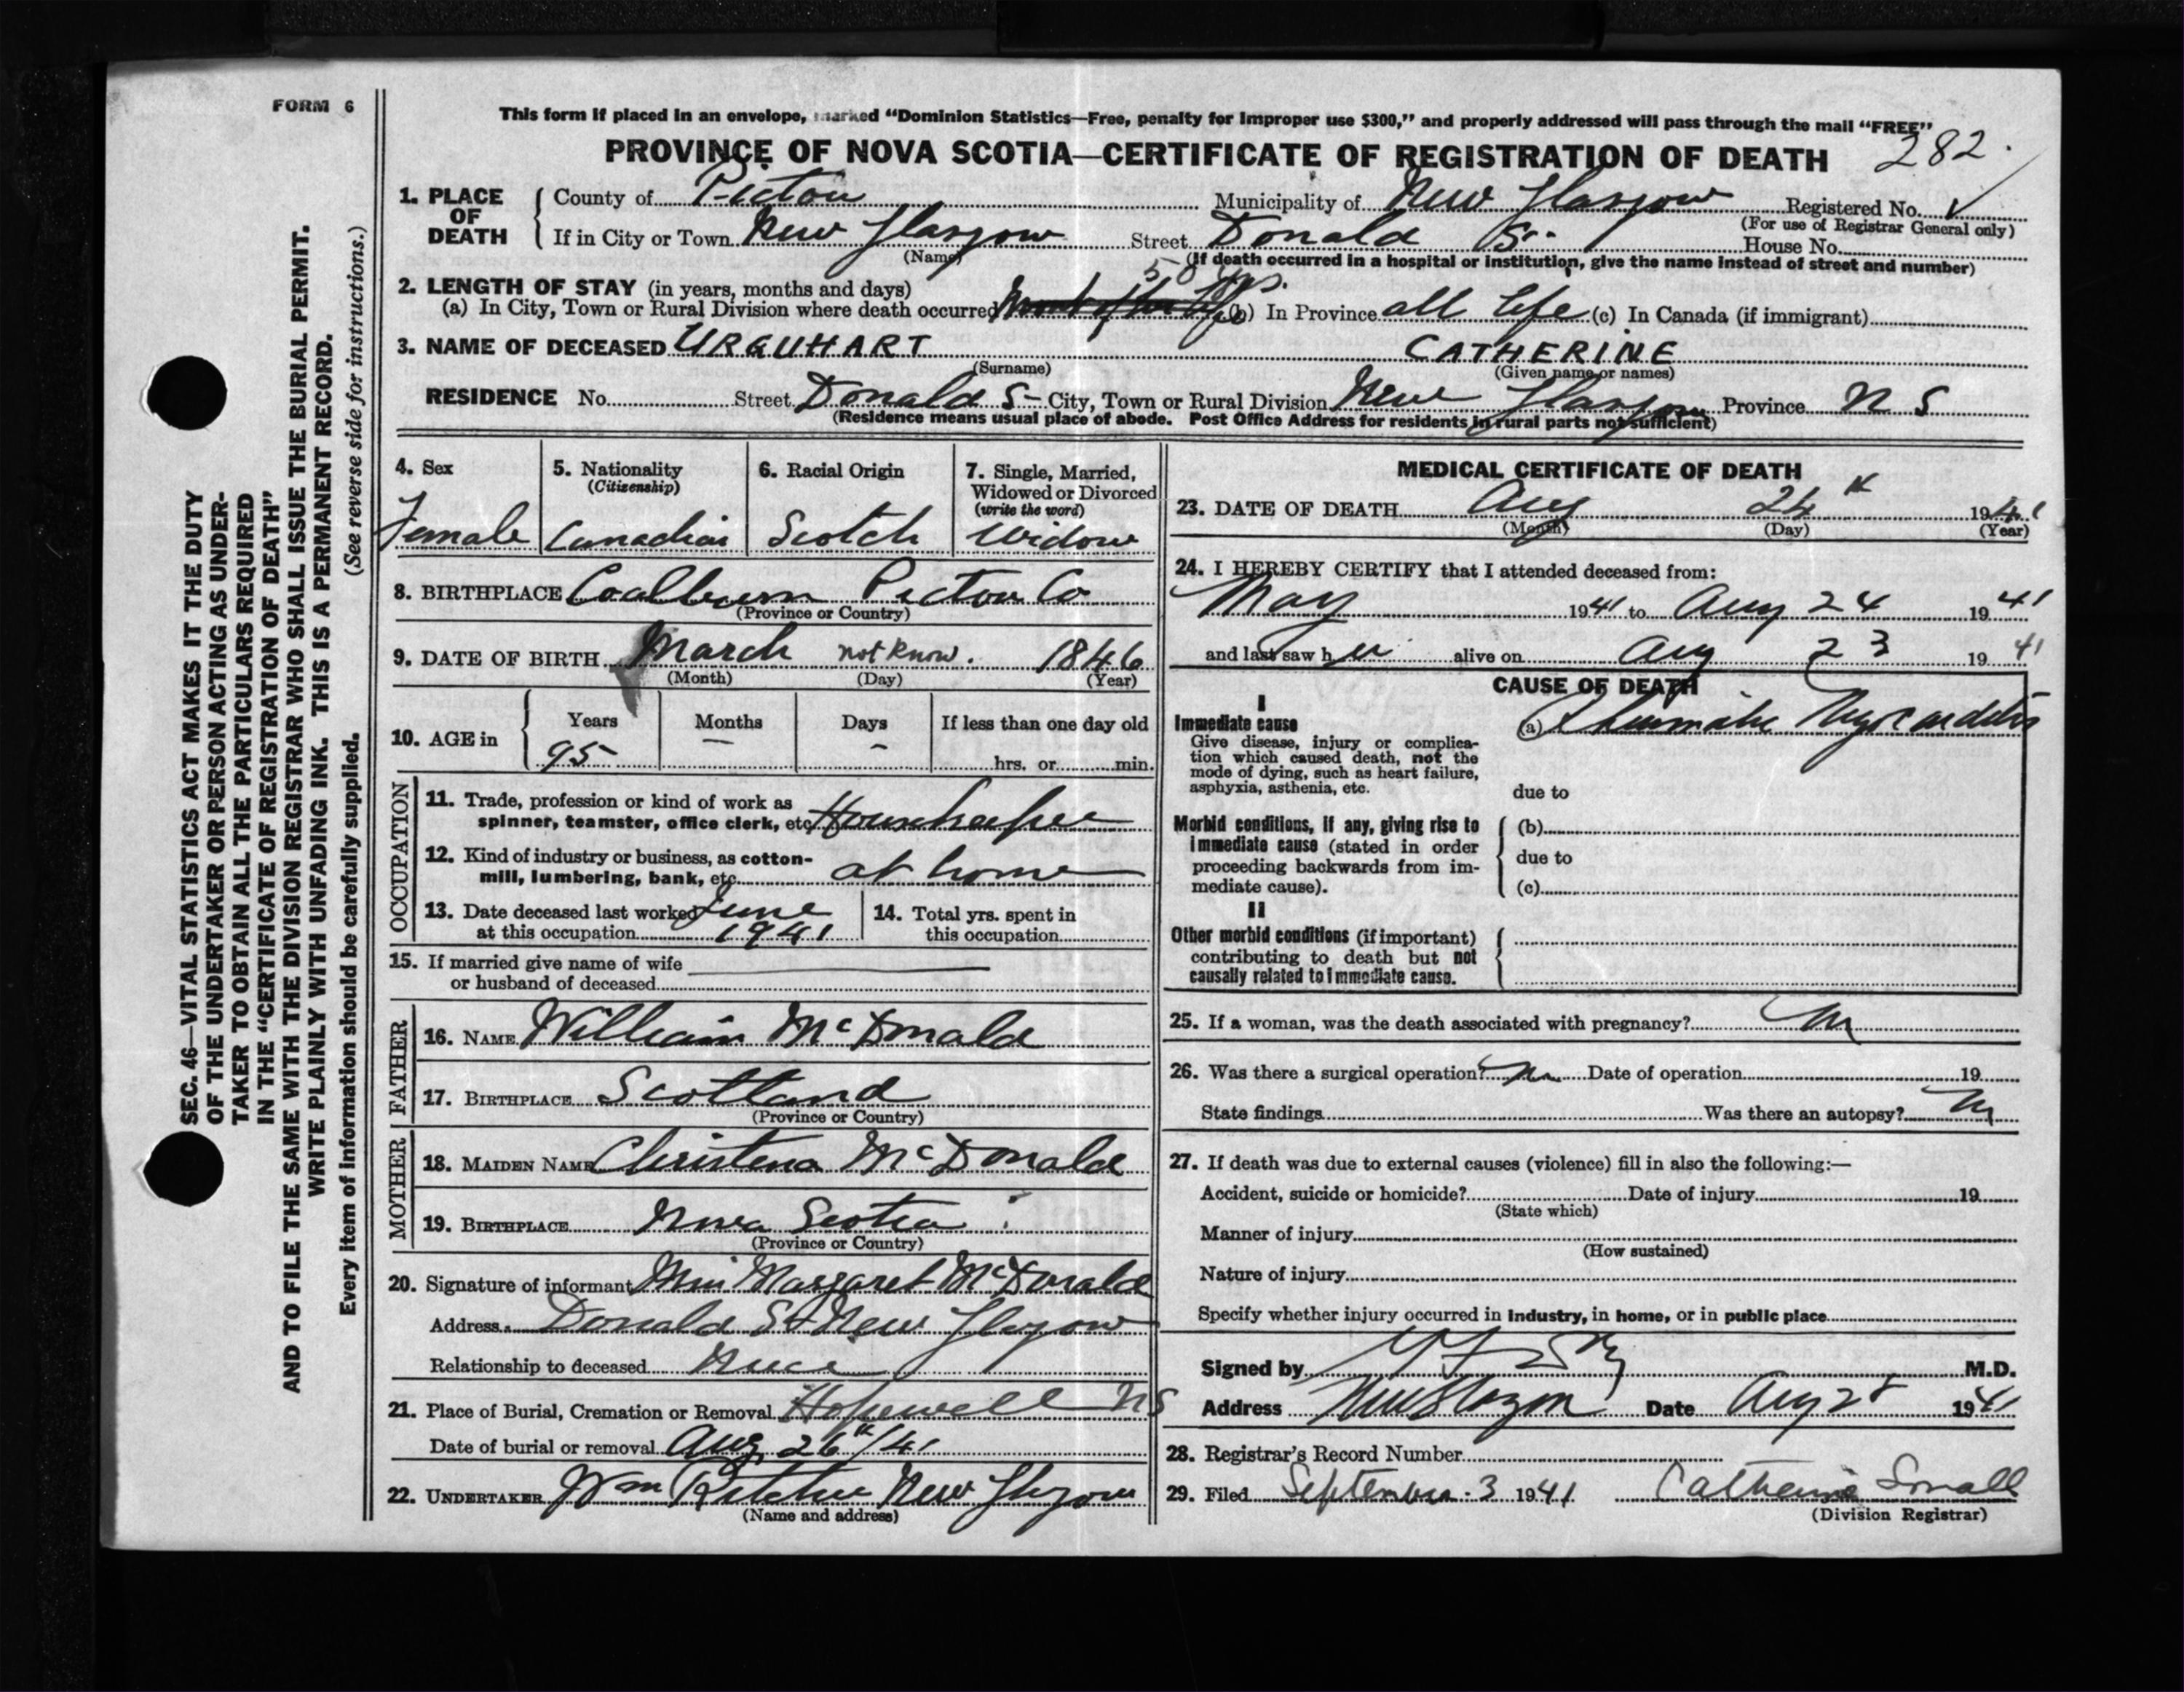 FORM 6
This form if placed in an envelope, marked "Dominion Statistics—Free, penalty for improper use $300," and properly addressed will pass through the mail "FREE"
PROVINCE OF NOVA SCOTIA—CERTIFICATE OF REGISTRATION OF DEATH 282.
1. PLACE OF DEATH
County of Pictou Municipality of New Glasgow Registered No. ✓
(For use of Registrar General only)
If in City or Town New Glasgow Street Donald St. House No.
(Name) (If death occurred in a hospital or institution, give the name instead of street and number)
2. LENGTH OF STAY (in years, months and days) 50 yrs.
(a) In City, Town or Rural Division where death occurred (b) In Province all life (c) In Canada (if immigrant)
3. NAME OF DECEASED URQUHART CATHERINE
(Surname) (Given name or names)
RESIDENCE No. Street Donald St City, Town or Rural Division New Glasgow Province N S
(Residence means usual place of abode. Post Office Address for residents in rural parts not sufficient)
4. Sex
Female
5. Nationality
(Citizenship)
Canadian
6. Racial Origin
Scotch
7. Single, Married, Widowed or Divorced
(write the word)
Widow
8. BIRTHPLACE Coalburn Pictou Co
(Province or Country)
9. DATE OF BIRTH March not know. 1846
(Month) (Day) (Year)
10. AGE in
Years Months Days If less than one day old
95 — — hrs. or min.
OCCUPATION
11. Trade, profession or kind of work as
spinner, teamster, office clerk, etc. Housekeeper
12. Kind of industry or business, as cotton-
mill, lumbering, bank, etc. at home
13. Date deceased last worked June
at this occupation 1941
14. Total yrs. spent in
this occupation
15. If married give name of wife
or husband of deceased
FATHER
16. NAME William McDonald
17. BIRTHPLACE Scotland
(Province or Country)
MOTHER
18. MAIDEN NAME Christena McDonald
19. BIRTHPLACE Nova Scotia
(Province or Country)
20. Signature of informant Miss Margaret McDonald
Address Donald St New Glasgow
Relationship to deceased Niece
21. Place of Burial, Cremation or Removal Hopewell NS
Date of burial or removal Aug 26th/41
22. UNDERTAKER Wm Ritchie New Glasgow
(Name and address)
MEDICAL CERTIFICATE OF DEATH
23. DATE OF DEATH Aug 24th 1941
(Month) (Day) (Year)
24. I HEREBY CERTIFY that I attended deceased from:
May 1941 to Aug 24 1941
and last saw h er alive on Aug 23 1941
CAUSE OF DEATH
I
Immediate cause
Give disease, injury or complica-
tion which caused death, not the
mode of dying, such as heart failure,
asphyxia, asthenia, etc.
(a) Rheumatic Myocarditis
due to
Morbid conditions, if any, giving rise to
immediate cause (stated in order
proceeding backwards from im-
mediate cause).
(b)
due to
(c)
II
Other morbid conditions (if important)
contributing to death but not
causally related to immediate cause.
25. If a woman, was the death associated with pregnancy? no
26. Was there a surgical operation? no Date of operation 19
State findings Was there an autopsy? no
27. If death was due to external causes (violence) fill in also the following:—
Accident, suicide or homicide? Date of injury 19
(State which)
Manner of injury
(How sustained)
Nature of injury
Specify whether injury occurred in industry, in home, or in public place
Signed by M.D.
Address New Glasgow Date Aug 28 1941
28. Registrar's Record Number
29. Filed September 3 1941 Catherine Small
(Division Registrar)
SEC. 46—VITAL STATISTICS ACT MAKES IT THE DUTY
OF THE UNDERTAKER OR PERSON ACTING AS UNDER-
TAKER TO OBTAIN ALL THE PARTICULARS REQUIRED
IN THE "CERTIFICATE OF REGISTRATION OF DEATH"
AND TO FILE THE SAME WITH THE DIVISION REGISTRAR WHO SHALL ISSUE THE BURIAL PERMIT.
WRITE PLAINLY WITH UNFADING INK. THIS IS A PERMANENT RECORD.
Every item of information should be carefully supplied. (See reverse side for instructions.)